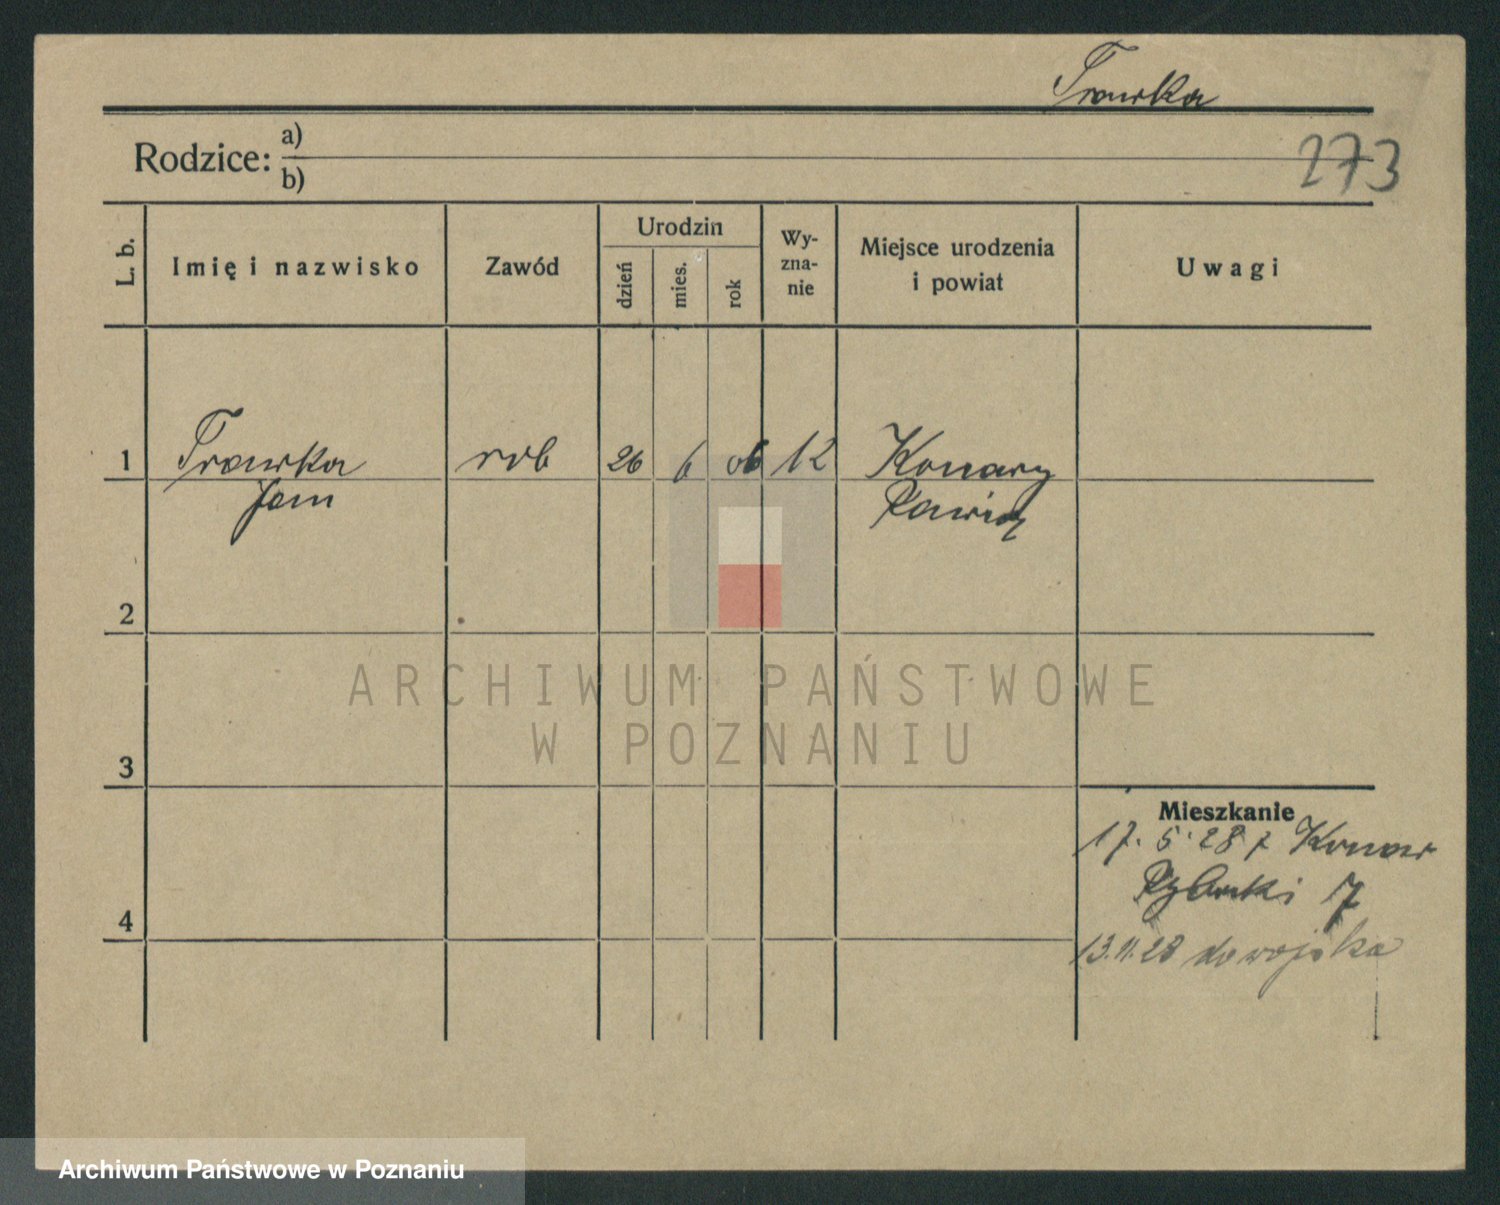 Trawka
273
Rodzice: a)
b)
L. b.
Imię i nazwisko
Zawód
Urodzin
dzień
mies.
rok
Wy-
zna-
nie
Miejsce urodzenia
i powiat
Uwagi
1 Trawka rob 26 6 06 Konary
Jan
2
3
Mieszkanie
17. 5. 28 z Konar
7
4
13.11.28 do wojska
ARCHIWUM PAŃSTWOWE
W POZNANIU
Archiwum Państwowe w Poznaniu